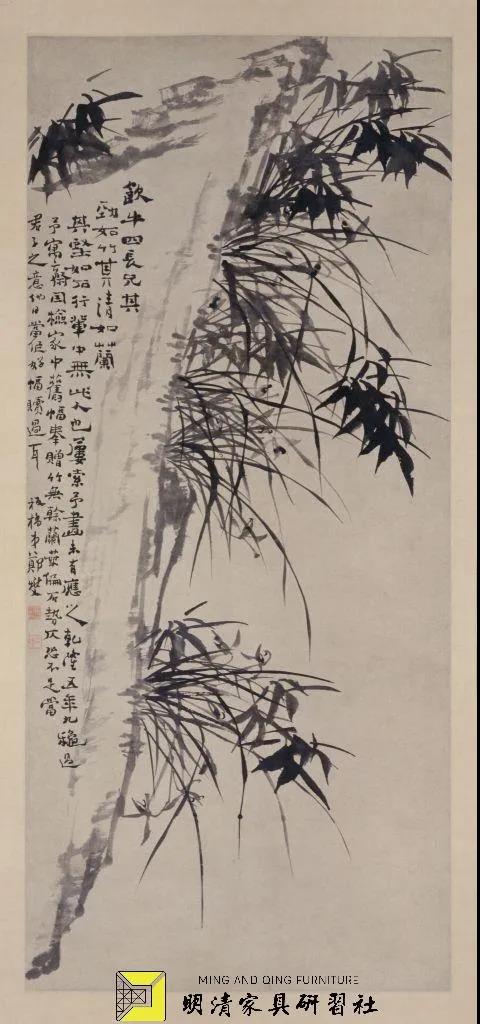 飲牛四長兄其
勁如竹其清如蘭
其堅如石行輩中無此人也屢索予畫未有應之乾隆五年九穐過
予寓齋因檢家中舊幅奉贈竹無榦蘭葉偏石勢仄恐不足當
君子之意他日當作好幅贖過耳 板橋弟鄭燮
MING AND QING FURNITURE
明清家具研習社